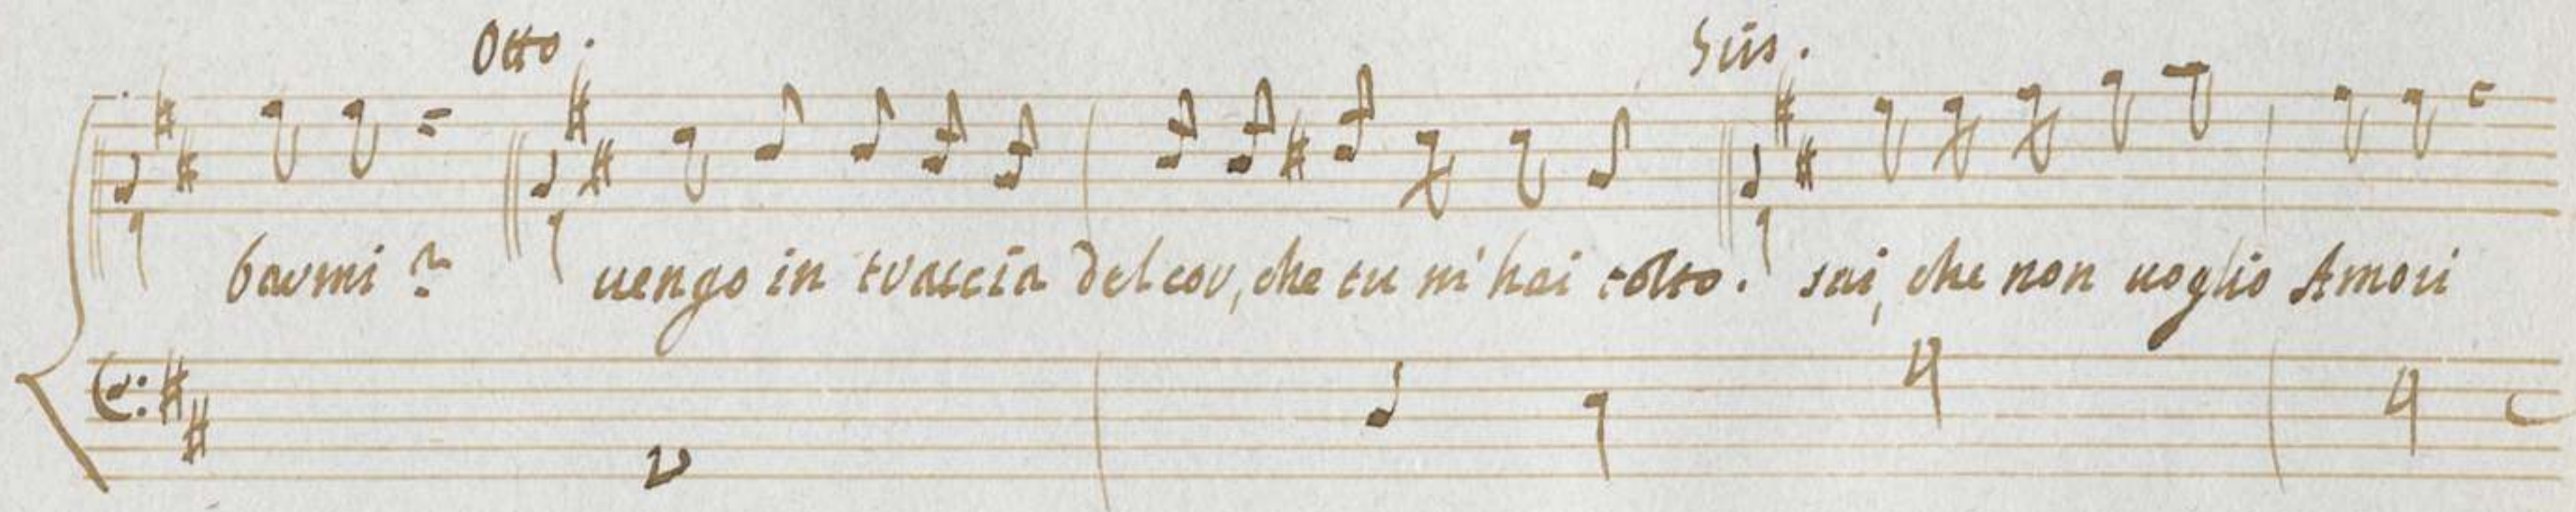 Otto. Sus.
barmi? uengo in traccia del cor, che tu m'hai tolto. sai, che non uoglio Amori